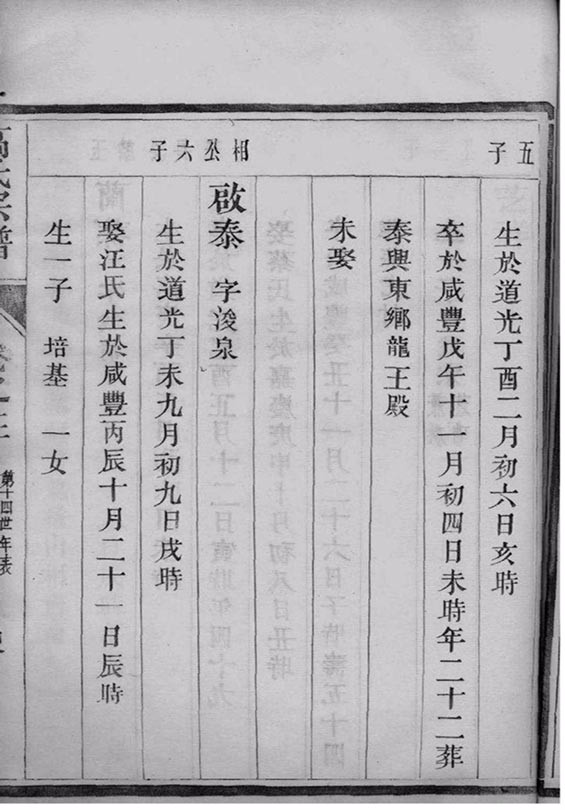 五子
生於道光丁酉二月初六日亥時
卒於咸豐戊午十一月初四日未時年二十二葬
泰興東鄉龍王殿
未娶
相公六子
啟泰 字浚泉
生於道光丁未九月初九日戌時
娶汪氏生於咸豐丙辰十月二十一日辰時
生一子 培基 一女
氏宗譜
第十四世年表